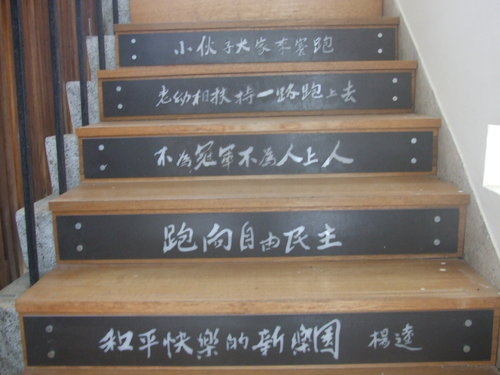 小伙子大家來賽跑
老幼相扶持一路跑上去
不為冠軍不為人上人
跑向自由民主
和平快樂的新樂園 楊逵